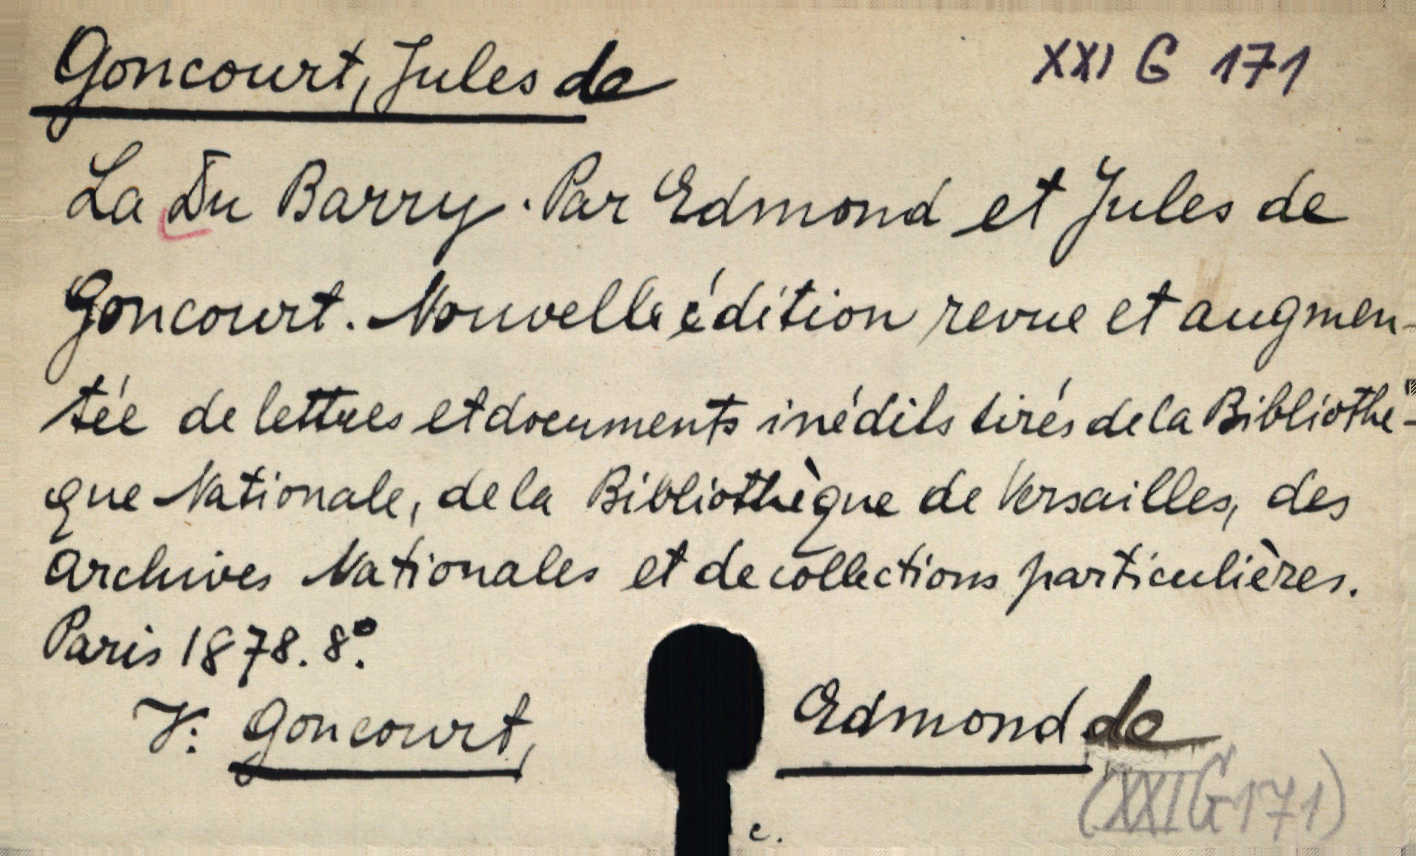 Goncourt, Jules de XXI G 171
La Du Barry. Par Edmond et Jules de
Goncourt. Nouvelle édition revue et augmen-
tée de lettres et documents inédits tirés de la Bibliothè-
que Nationale, de la Bibliothèque de Versailles, des
Archives Nationales et de collections particulières.
Paris 1878. 8º.
V: Goncourt, Edmond de
(XXI G 171)
c.